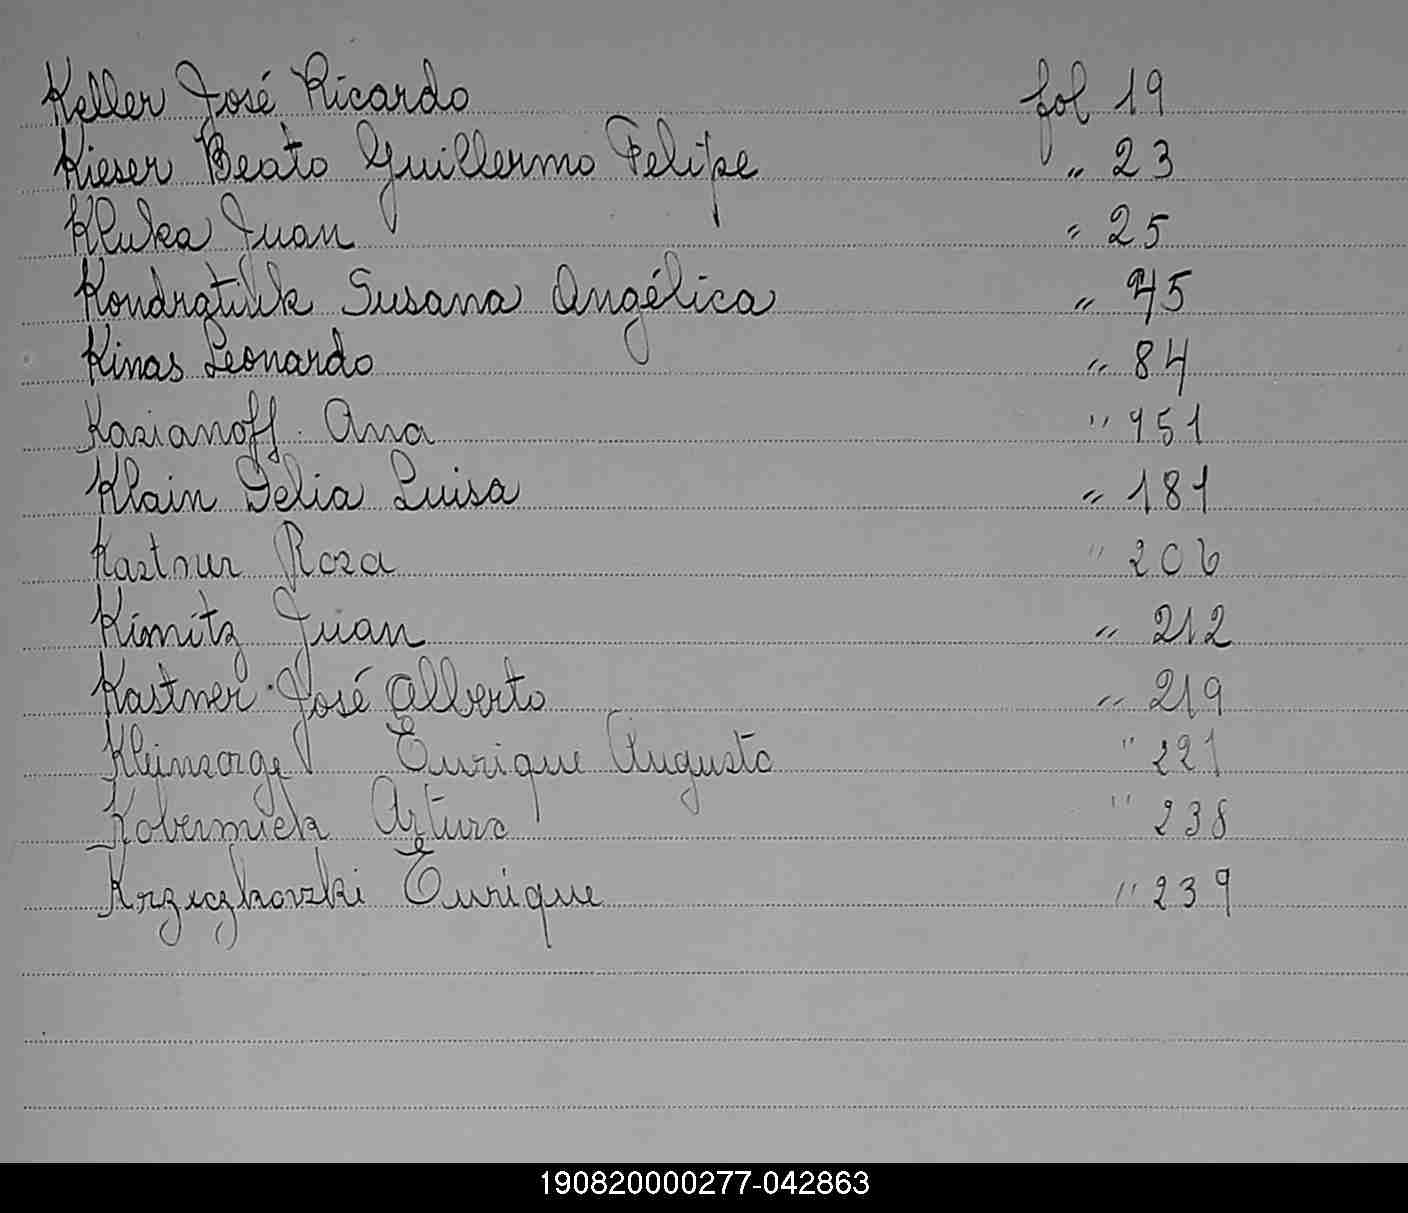 Keller José Ricardo fol 19
Kieser Beato Guillermo Felipe " 23
Kluka Juan " 25
Kondratiuk Susana Angélica " 75
Kinas Leonardo " 84
Kasianoff Ana " 151
Klain Delia Luisa " 181
Kastner Rosa " 206
Kimitz Juan " 212
Kastner José Alberto " 219
Kleinsorge Enrique Augusto " 221
Kobernick Arturo " 238
Krzeczkovski Enrique " 239
190820000277-042863